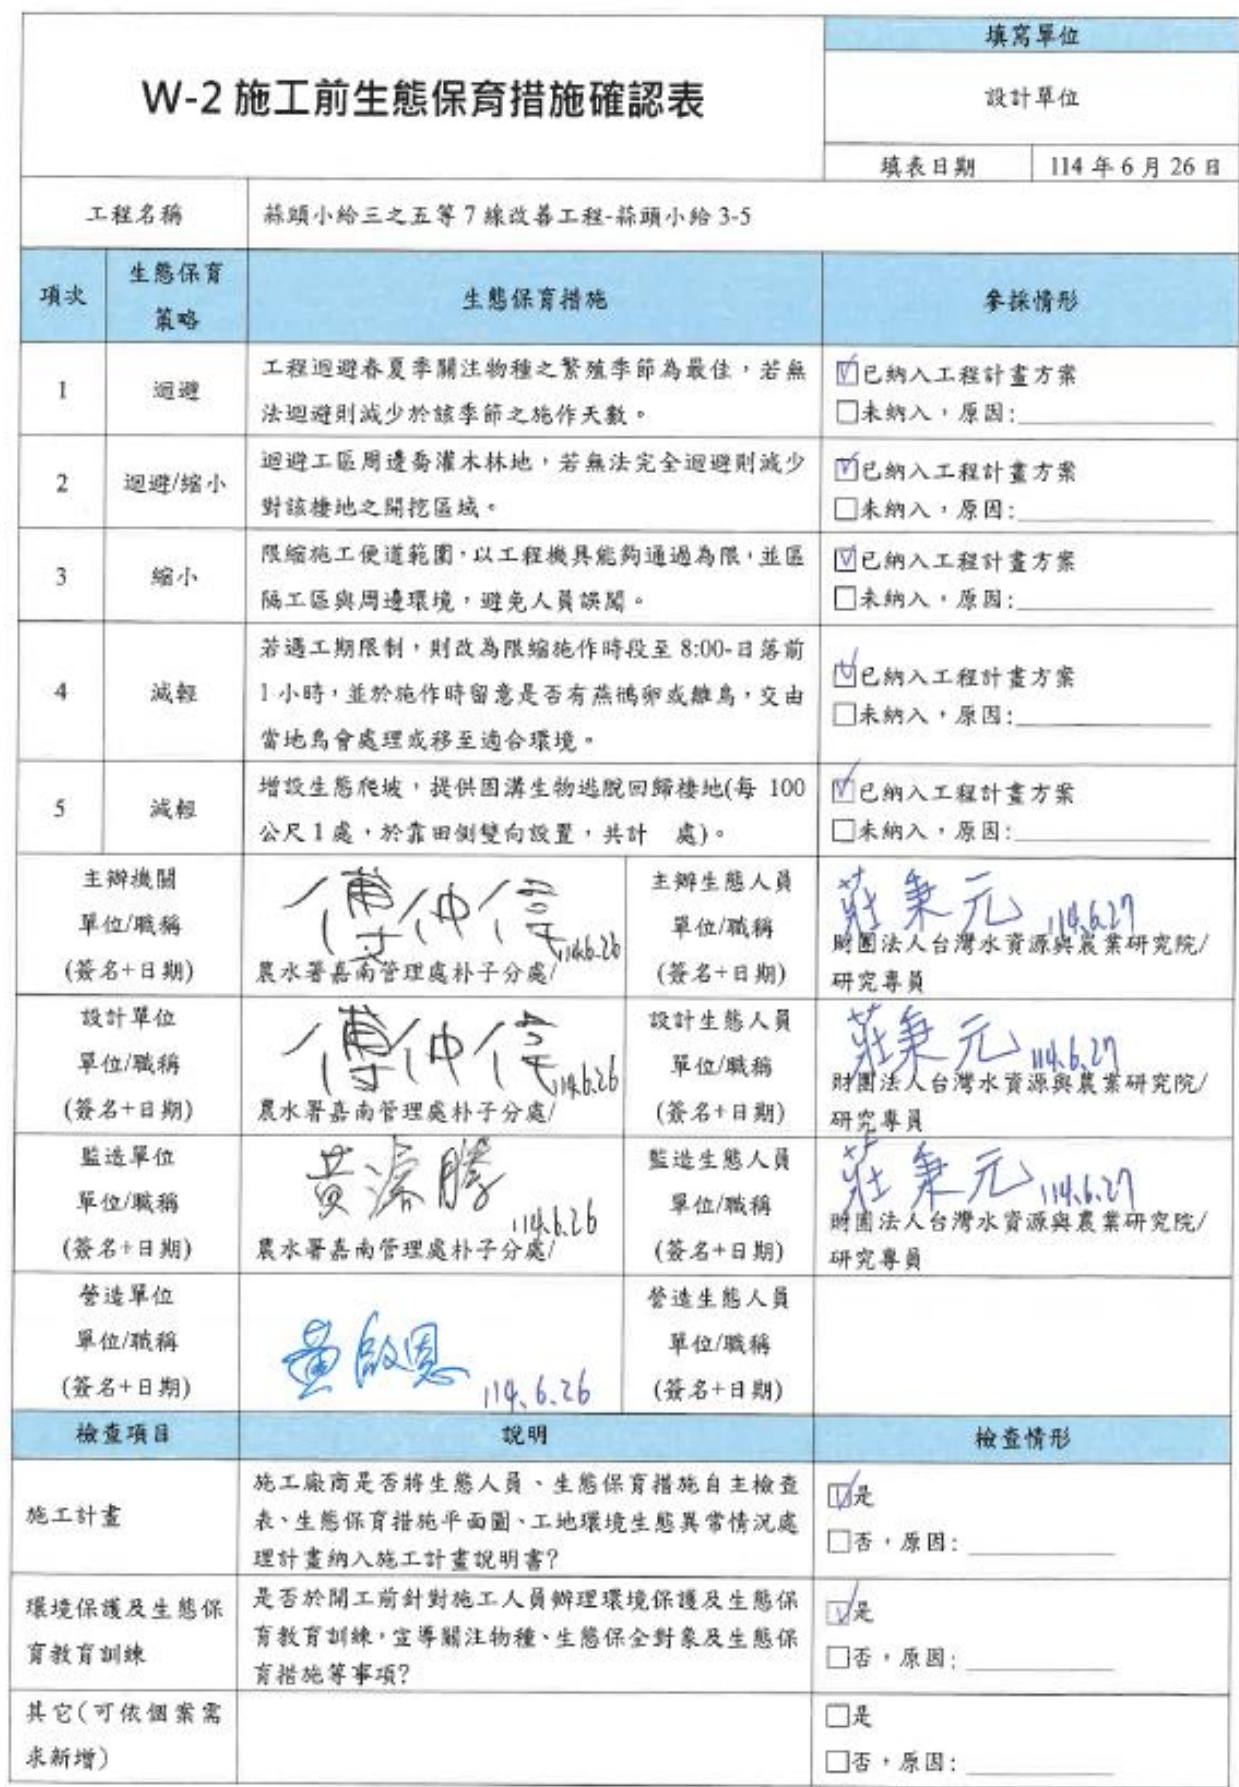 W-2 施工前生態保育措施確認表
填寫單位
設計單位
填表日期
114 年 6 月 26 日
工程名稱
蒜頭小給三之五等 7 線改善工程-蒜頭小給 3-5
項次
生態保育
策略
生態保育措施
參採情形
1
迴避
工程迴避春夏季關注物種之繁殖季節為最佳，若無
法迴避則減少於該季節之施作天數。
☑已納入工程計畫方案
□未納入，原因:
2
迴避/縮小
迴避工區周邊喬灌木林地，若無法完全迴避則減少
對該棲地之開挖區域。
☑已納入工程計畫方案
□未納入，原因:
3
縮小
限縮施工便道範圍，以工程機具能夠通過為限，並區
隔工區與周邊環境，避免人員誤闖。
☑已納入工程計畫方案
□未納入，原因:
4
減輕
若遇工期限制，則改為限縮施作時段至 8:00-日落前
1 小時，並於施作時留意是否有燕鴴卵或雛鳥，交由
當地鳥會處理或移至適合環境。
☑已納入工程計畫方案
□未納入，原因:
5
減輕
增設生態爬坡，提供困溝生物逃脫回歸棲地(每 100
公尺 1 處，於靠田側雙向設置，共計 處)。
☑已納入工程計畫方案
□未納入，原因:
主辦機關
單位/職稱
(簽名+日期)
傅仲偉 114.6.26
農水署嘉南管理處朴子分處/
主辦生態人員
單位/職稱
(簽名+日期)
莊秉元 114.6.27
財團法人台灣水資源與農業研究院/
研究專員
設計單位
單位/職稱
(簽名+日期)
傅仲偉 114.6.26
農水署嘉南管理處朴子分處/
設計生態人員
單位/職稱
(簽名+日期)
莊秉元 114.6.27
財團法人台灣水資源與農業研究院/
研究專員
監造單位
單位/職稱
(簽名+日期)
114.6.26
農水署嘉南管理處朴子分處/
監造生態人員
單位/職稱
(簽名+日期)
莊秉元 114.6.27
財團法人台灣水資源與農業研究院/
研究專員
營造單位
單位/職稱
(簽名+日期)
黃啟恩 114.6.26
營造生態人員
單位/職稱
(簽名+日期)
檢查項目
說明
檢查情形
施工計畫
施工廠商是否將生態人員、生態保育措施自主檢查
表、生態保育措施平面圖、工地環境生態異常情況處
理計畫納入施工計畫說明書?
☑是
□否，原因:
環境保護及生態保
育教育訓練
是否於開工前針對施工人員辦理環境保護及生態保
育教育訓練，宣導關注物種、生態保全對象及生態保
育措施等事項?
☑是
□否，原因:
其它(可依個案需
求新增)
□是
□否，原因: